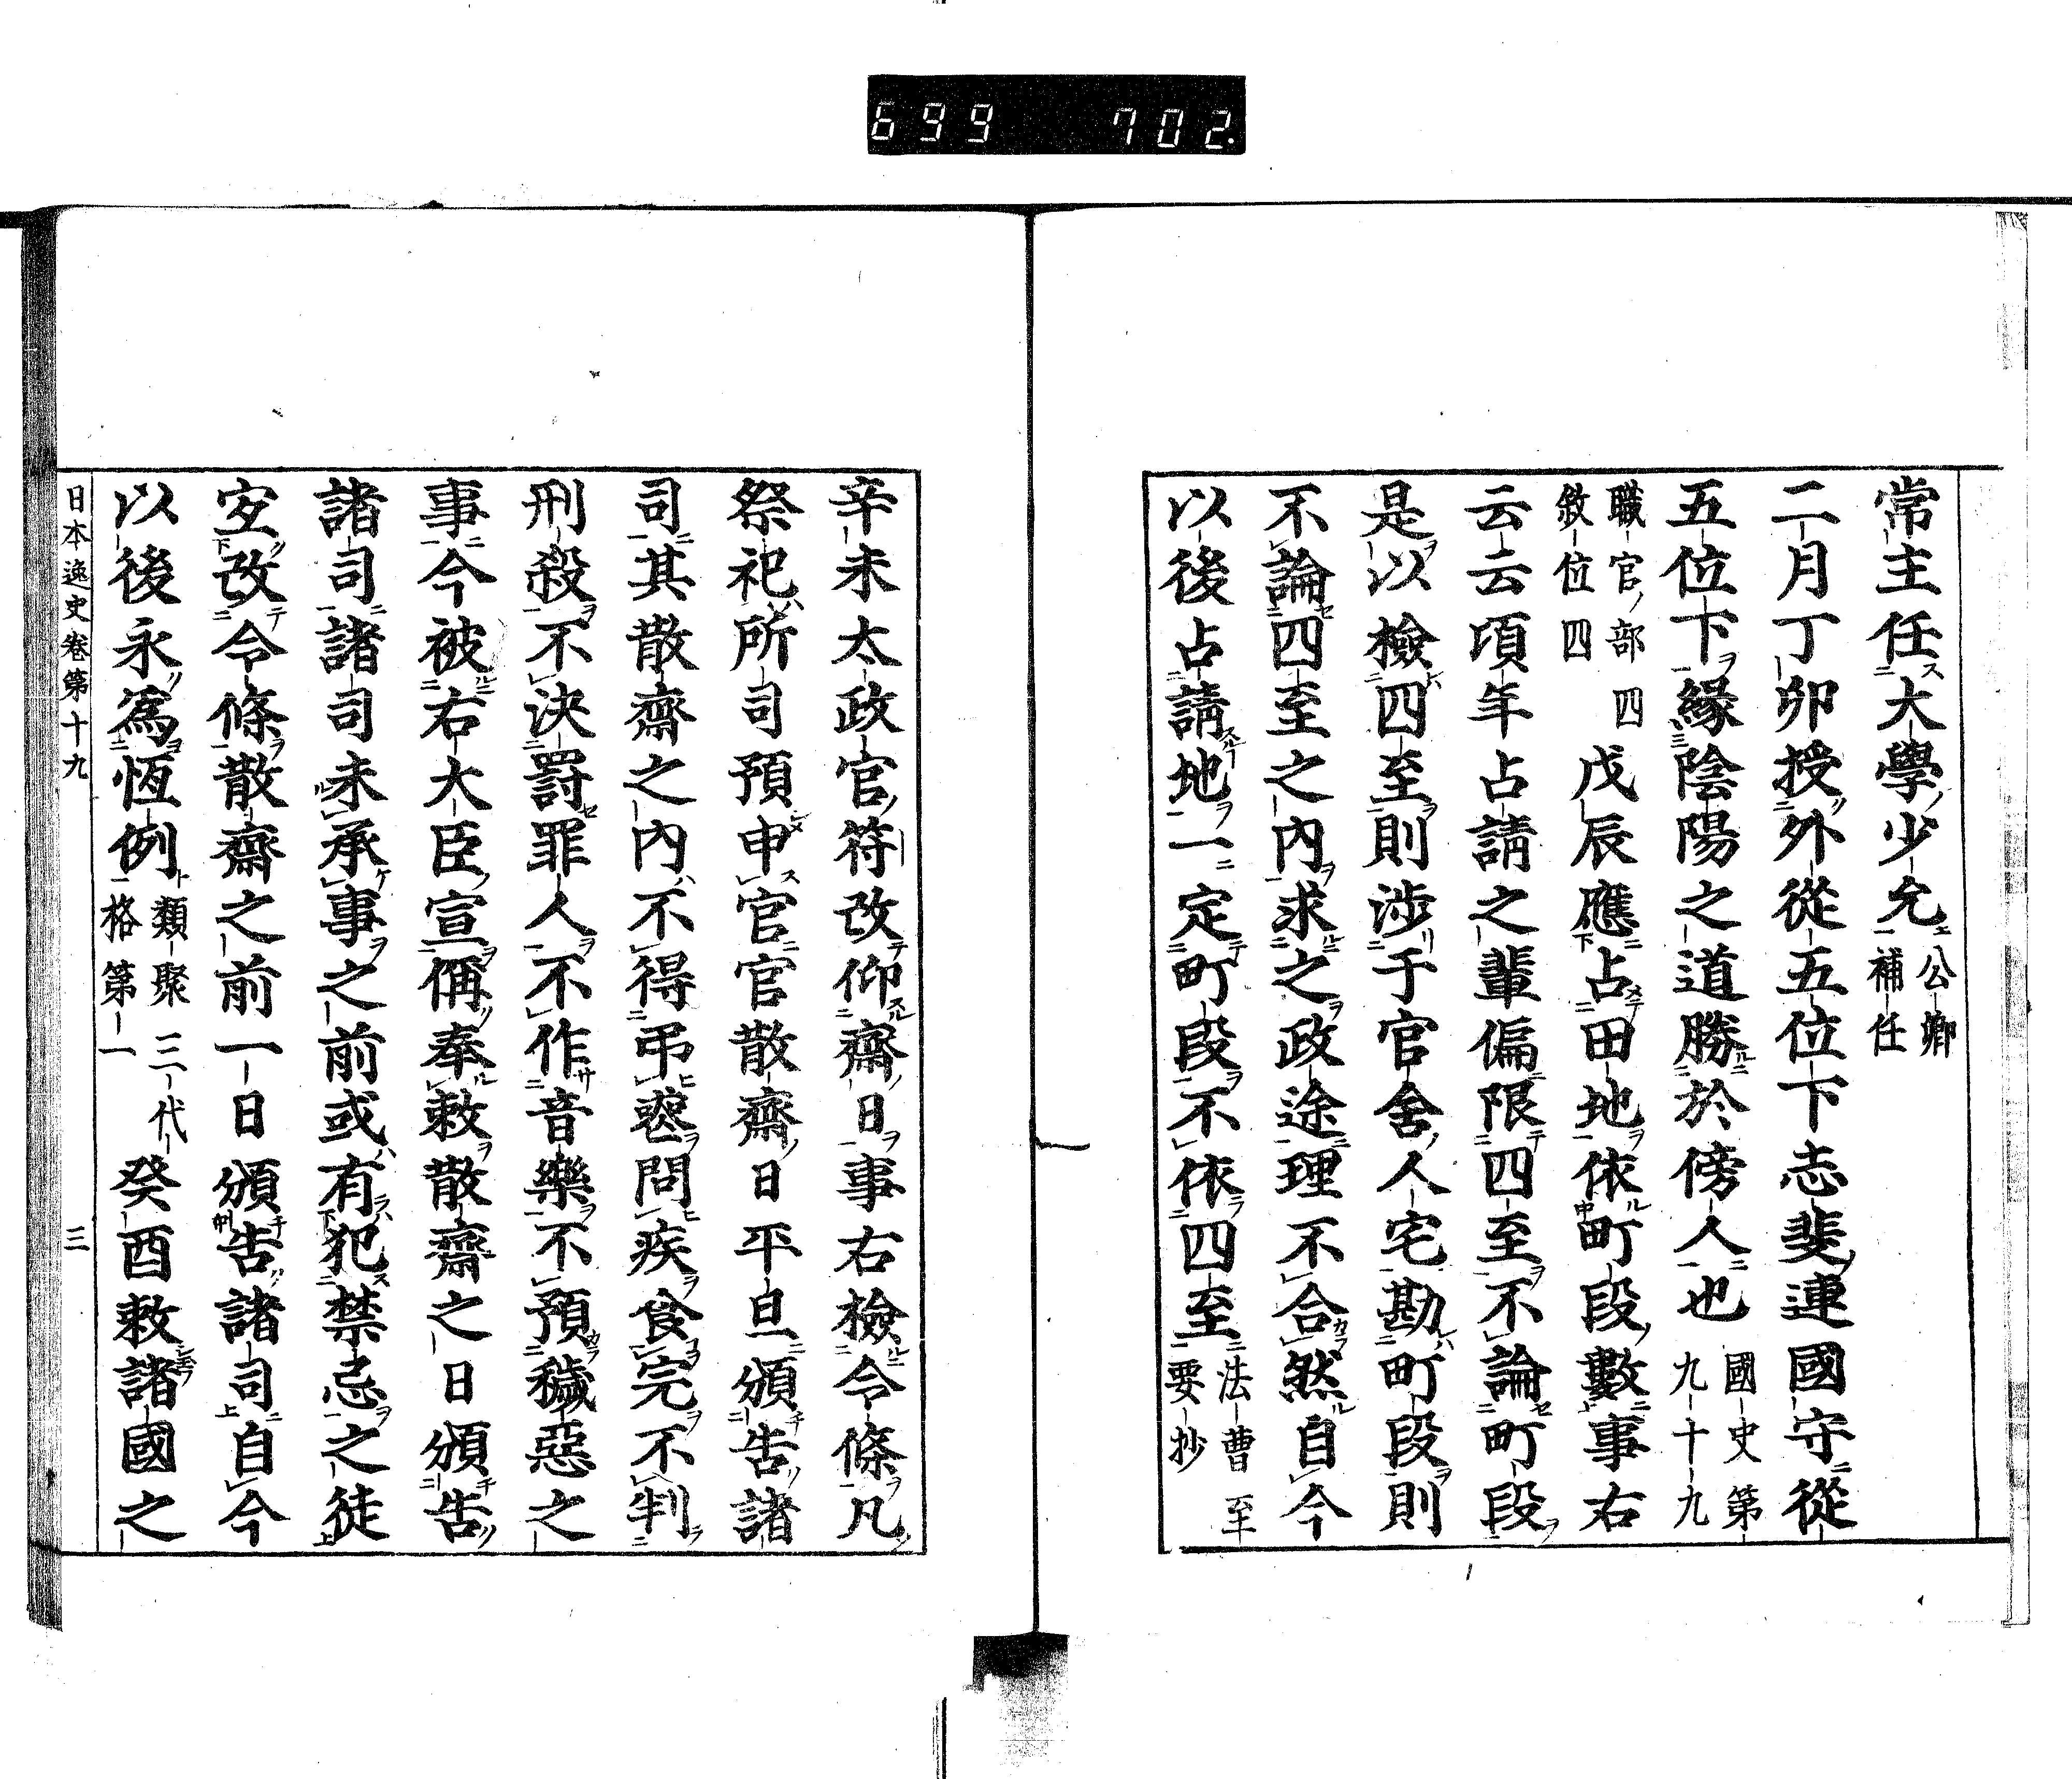 699 702
常主任大學少允公卿補任
二月丁卯授外從五位下志斐連國守從
五位下緣陰陽之道勝於傍人也國史第九十九
職官部四敘位四戊辰應占田地依町段數事右
云云項年占請之輩偏限四至不論町段
是以檢四至則涉于官舍人宅勘町段則
不論四至之內求之政途理不合然自今
以後占請地一定町段不依四至法曹至要抄
辛未太政官符改仰齋日事右檢令條凡
祭祀所司預申官官散齋日平旦頒告諸
司其散齋之內不得弔喪問疾食完不判
刑殺不決罰罪人不作音樂不預穢惡之
事今被右大臣宣偁奉敕散齋之日頒告
諸司諸司未承事之前或有犯禁忌之徒
宜改令條散齋之前一日頒告諸司自今
以後永爲恆例類聚三代格第一癸酉敕諸國之
日本逸史卷第十九 三